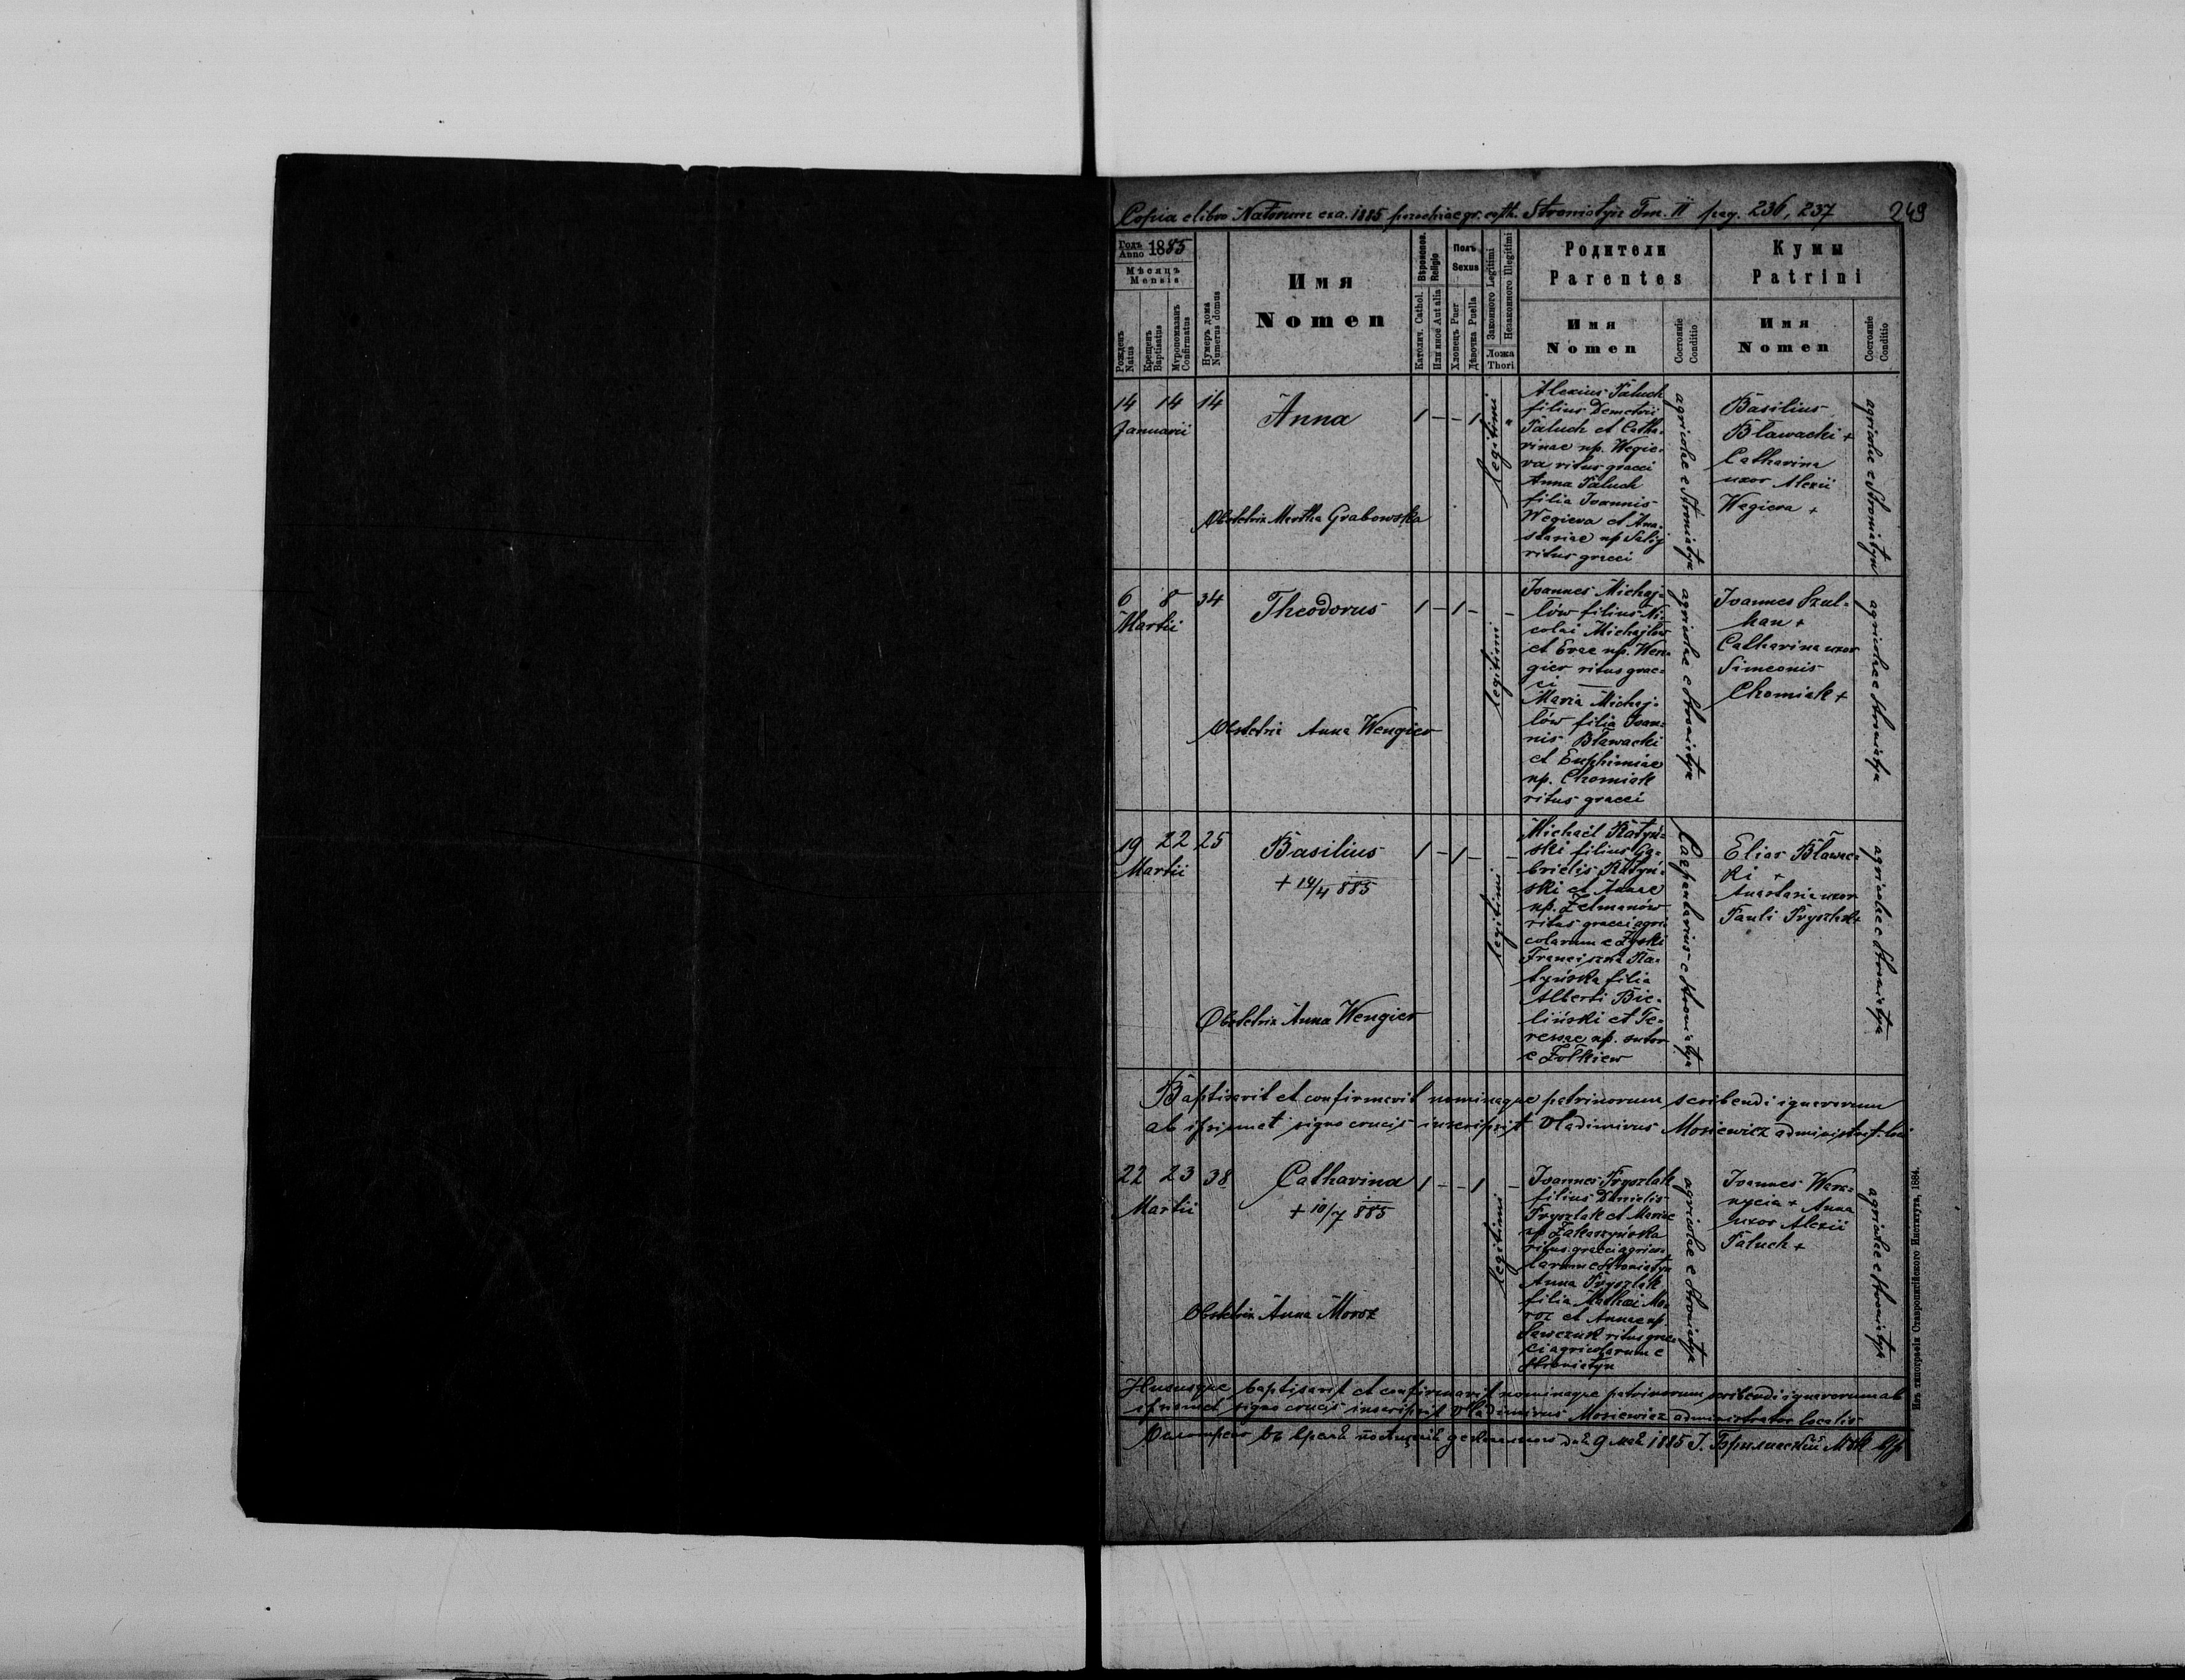 Copia e libro Natorum ex a. 1885 parochiae gr. cath. Stroniatyn Tm. II pag. 236, 237
249
Годъ
Anno 1885
Мѣсяцъ
Mensis
Рожденъ
Natus
Крещенъ
Baptisatus
Мѵропомазанъ
Confirmatus
Нумеръ дома
Numerus domus
Имя
Nomen
Вѣроиспов.
Religio
Католич. Cathol.
Или иное Aut alia
Полъ
Sexus
Хлопецъ Puer
Дѣвочка Puella
Законного Legitimi
Незаконного Illegitimi
Ложа
Thori
Родители
Parentes
Имя
Nomen
Состояніе
Conditio
Кумы
Patrini
Имя
Nomen
Состояніе
Conditio
14 14 14
Januarii
Anna
1 - - 1
legitimi
Obstetrix Martha Grabowska
Alexius Paluch
filius Demetrii
Paluch et Catha-
rinae np. Wegie-
ra ritus graeci
Anna Paluch
filia Joannis
Wegiera et Ana-
stasiae np
ritus graeci
agricolae e Stroniatyn
Basilius
Bławacki +
Catharina
uxor Alexii
Wegiera +
agricolae e Stroniatyn
6 8 34
Martii
Theodorus
1 - 1 - -
legitimi
Obstetrix Anna Wengier
Joannes Michaj-
lów filius Ni-
colai Michajlów
et Evae np. Wen-
gier ritus grae-
ci
Maria Michaj-
lów filia Joan-
nis Bławacki
et Euphimiae
np. Chomiak
ritus graeci
agricolae e Stroniatyn
Joannes Szul-
han +
Catharina uxor
Simeonis
Chomiak +
agricolae e Stroniatyn
19 22 25
Martii
Basilius
+ 14/4 885
1 - 1 - -
legitimi
Obstetrix Anna Wengier
Michael Ratyń-
ski filius Ga-
brielis Ratyń-
ski et Annae
np. Zelmanów
ritus graeci agri
colarum e
Franciszka Ra-
tyńska filia
Alberti Bie-
liński et Te-
resiae np. sutor
e Żołkiew
Carpentarius e Stroniatyn
Elias Bławac-
ki +
Anastasia uxor
Pauli Prysztak+
agricolae e Stroniatyn
Baptisavit et confirmavit nominaque patrinorum scribendi ignarorum
ab ipsismet signo crucis inscripsit Vladimirus Mosiewicz administrat. loci
22 23 38
Martii
Catharina
+ 10/7 885
1 - - 1 -
legitimi
Obstetrix Anna Moroz
Joannes Prysztak
filius Danielis
Prysztak et Mariae
np Zakaszyńska
ritus graeci agrico-
larum e Stroniatyn
Anna Prysztak
filia Mathaei Mo-
roz et Annae np.
Sawczuk ritus grae-
ci agricolarum e
Stroniatyn
agricolae e Stroniatyn
Joannes Wara-
nycia + Anna
uxor Alexii
Paluch +
agricolae e Stroniatyn
Hucusque baptisavit et confirmavit nominaque patrinorum scribendi ignarorum ab
ipsismet signo crucis inscripsit Vladimirus Mosiewicz administrator localis
9 1885
Изъ типографіи Ставропигійского Института, 1884.